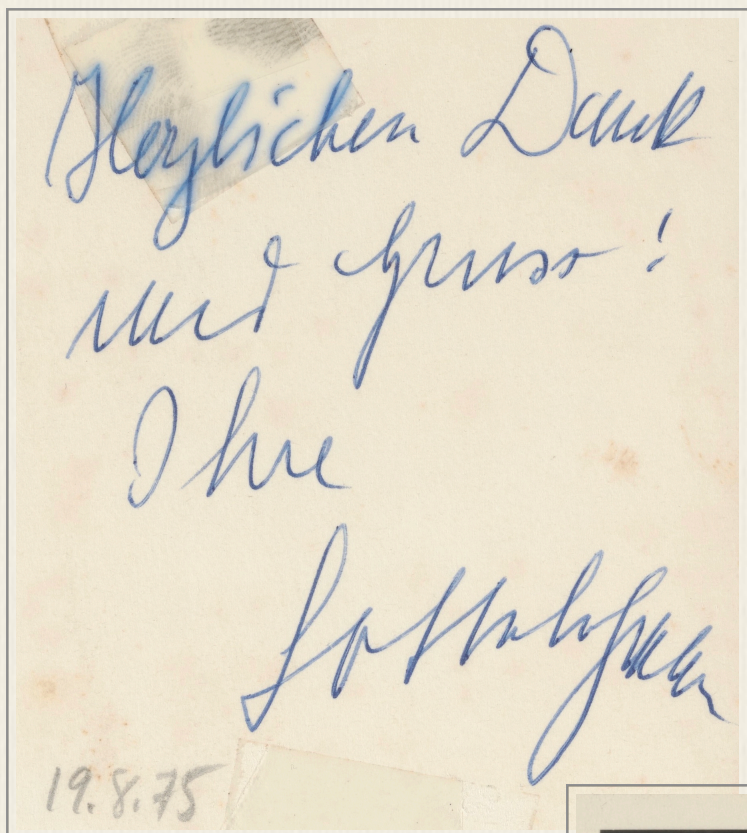 Herzlichen Dank
und Gruss!
Ihre
19.8.75